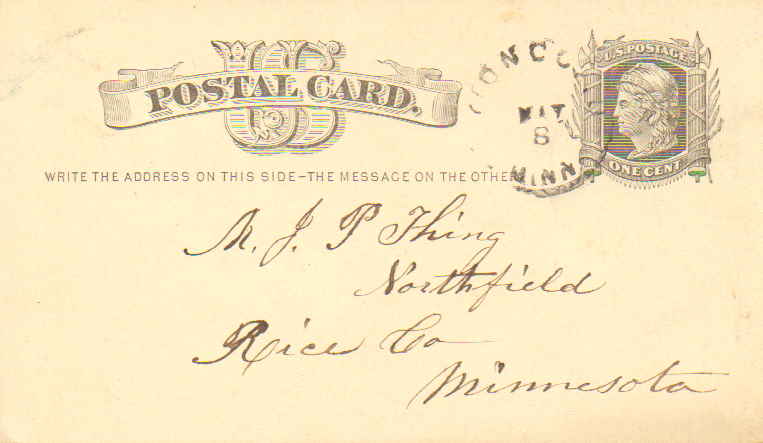 US
POSTAL CARD.
U.S. POSTAGE
ONE CENT
MAY
8
MINN
WRITE THE ADDRESS ON THIS SIDE–THE MESSAGE ON THE OTHER
M. J. P Thing
Northfield
Rice Co
Minnesota